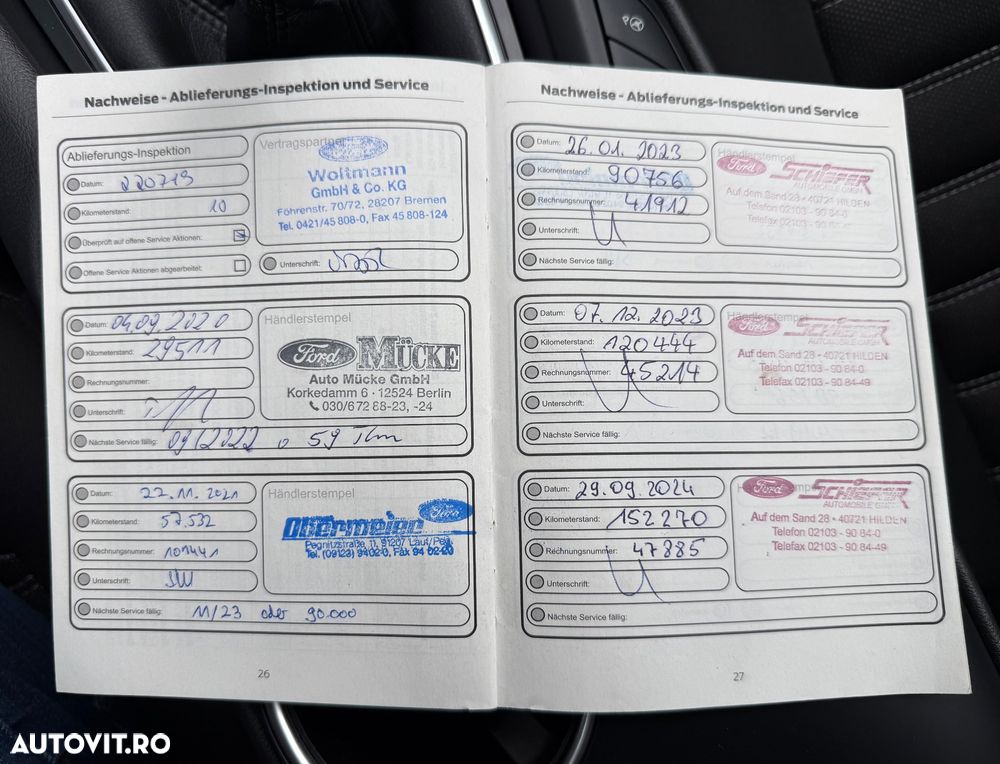 Nachweise - Ablieferungs-Inspektion und Service
Ablieferungs-Inspektion
Datum: 220719
Kilometerstand: 10
Überprüft auf offene Service Aktionen:
Offene Service Aktionen abgearbeitet:
Vertragspartner
Woltmann
GmbH & Co. KG
Föhrenstr. 70/72, 28207 Bremen
Tel. 0421/45 808-0, Fax 45 808-124
Unterschrift:
Datum: 04.09.2020
Kilometerstand: 29511
Rechnungsnummer:
Unterschrift:
Händlerstempel
Ford MÜCKE
Auto Mücke GmbH
Korkedamm 6 · 12524 Berlin
030/6 72 88-23, -24
Nächste Service fällig: 09/2022 o 59 Tkm
Datum: 22.11.2021
Kilometerstand: 57.532
Rechnungsnummer: 101441
Unterschrift:
Händlerstempel
Ford
Obermeier
Pegnitzstraße 11, 91207 Lauf/Peg.
Tel. (09123) 9402-0, Fax 94 02-20
Nächste Service fällig: 11/23 oder 90.000
26
Nachweise - Ablieferungs-Inspektion und Service
Datum: 26.01.2023
Kilometerstand: 90756
Rechnungsnummer: 41912
Unterschrift:
Händlerstempel
Ford SCHIEFER
AUTOMOBILE GMBH
Auf dem Sand 28 - 40721 HILDEN
Telefon 02103 - 90 84-0
Telefax 02103 - 90 84-49
Nächste Service fällig:
Datum: 07.12.2023
Kilometerstand: 120444
Rechnungsnummer: 45214
Unterschrift:
Händlerstempel
Ford SCHIEFER
AUTOMOBILE GMBH
Auf dem Sand 28 - 40721 HILDEN
Telefon 02103 - 90 84-0
Telefax 02103 - 90 84-49
Nächste Service fällig:
Datum: 29.09.2024
Kilometerstand: 152270
Rechnungsnummer: 47885
Unterschrift:
Ford SCHIEFER
AUTOMOBILE GMBH
Auf dem Sand 28 - 40721 HILDEN
Telefon 02103 - 90 84-0
Telefax 02103 - 90 84-49
Nächste Service fällig:
27
AUTOVIT.RO